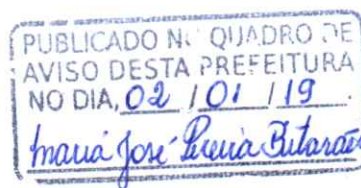 PUBLICADO NO QUADRO DE
AVISO DESTA PREFEITURA
NO DIA, 02 / 01 / 19.
Maria José Pereira